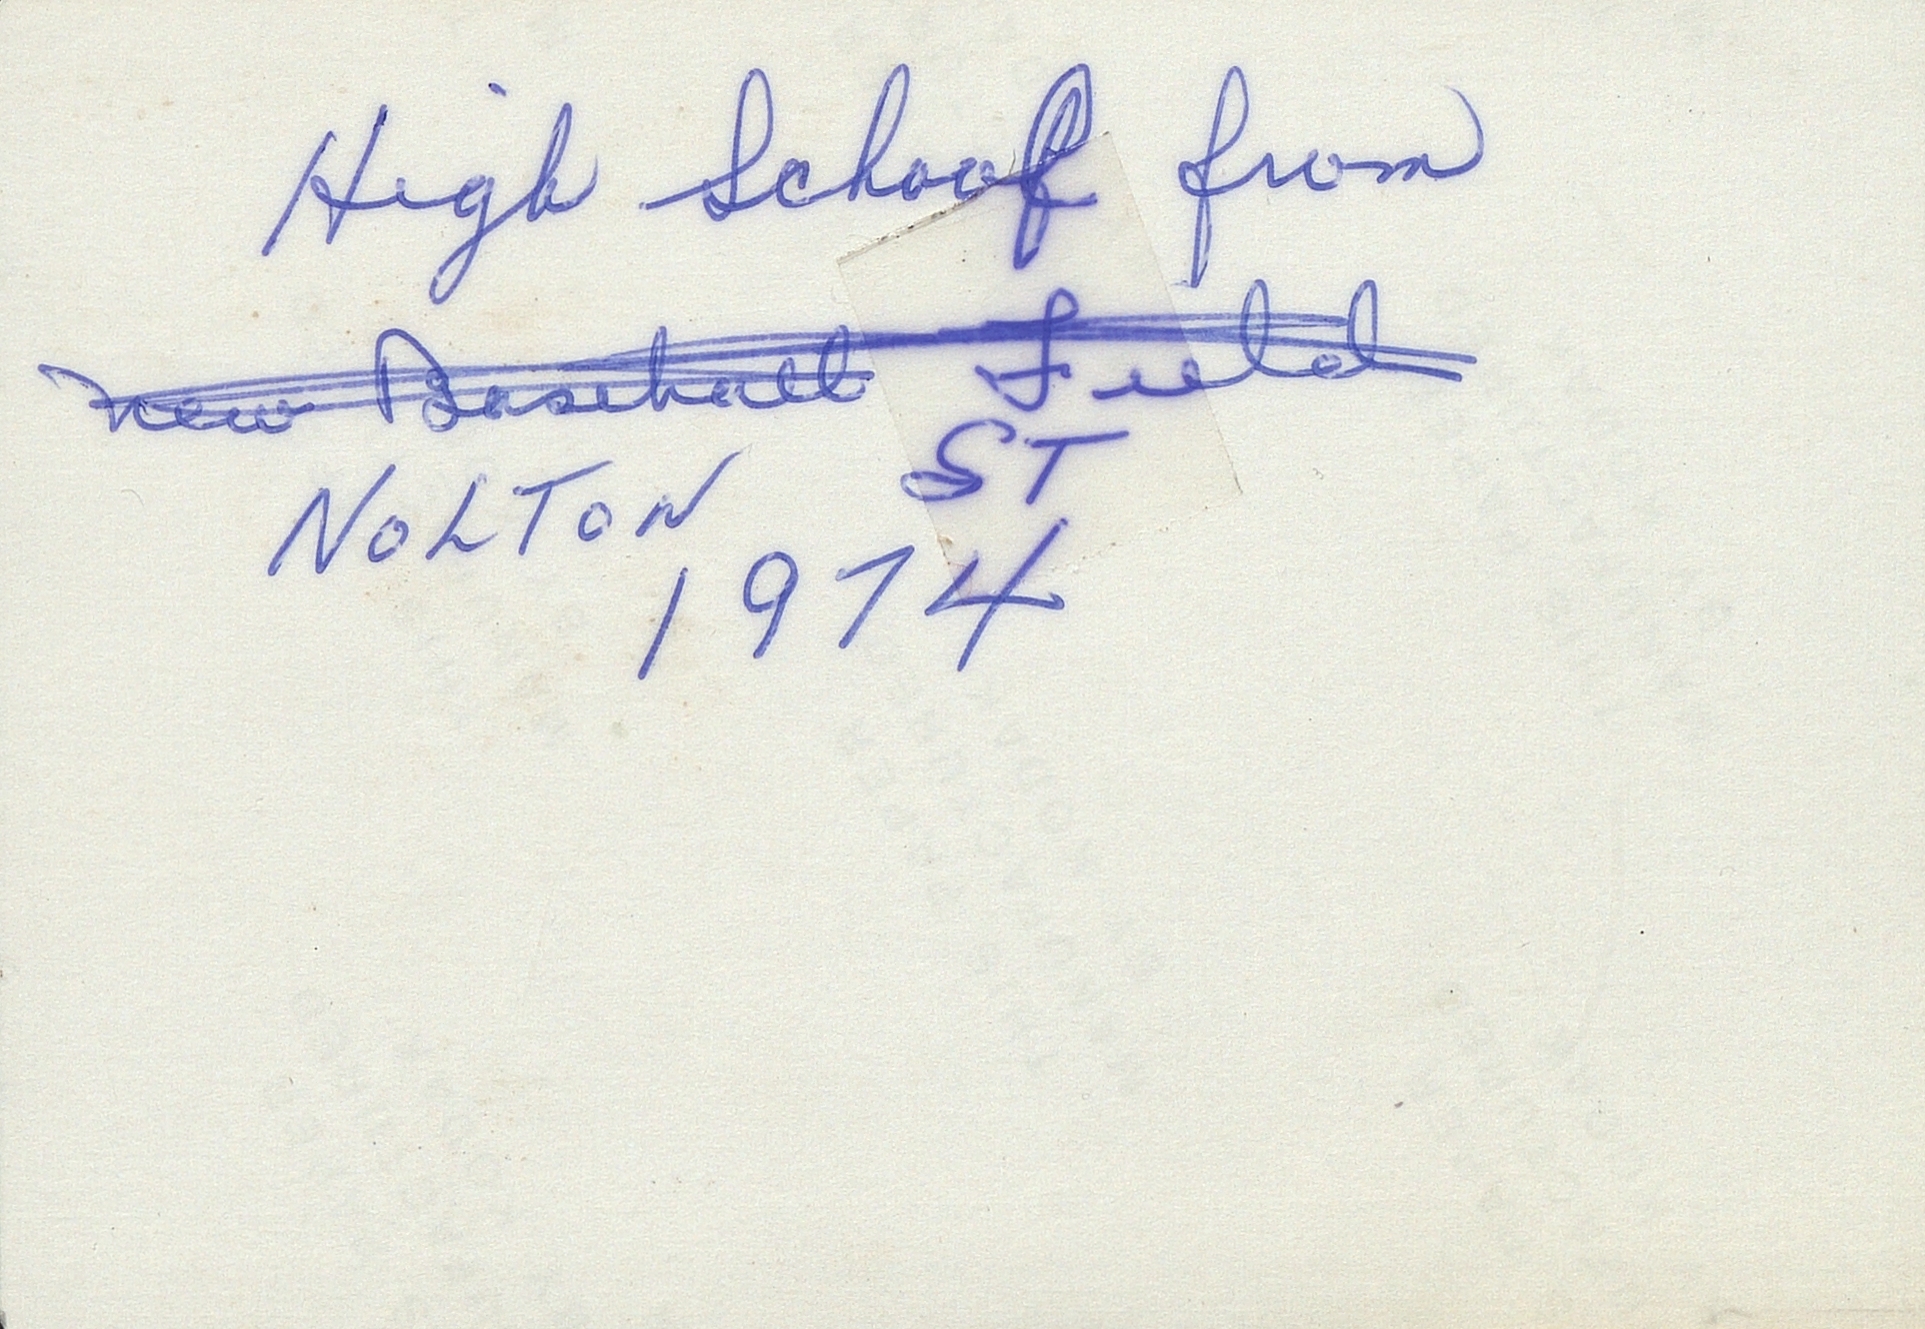 High School from
new Baseball Field
NOLTON ST
1974